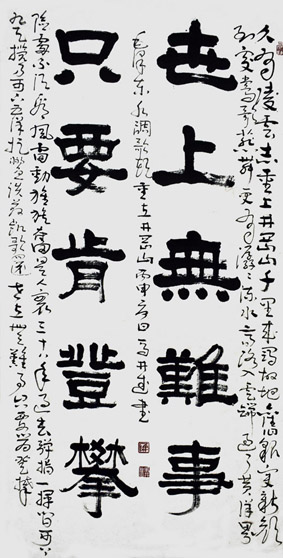 久有凌雲志重上井岡山千里來尋故地舊貌變新顏
到處鶯歌燕舞更有潺潺流水高路入雲端過了黃洋界
世上無難事
毛澤東水調歌頭重上井岡山丙申日書
只要肯登攀
險處不須看風雷動旌旗奮是人寰三十八年過去彈指一揮間可上
九天攬月可下五洋捉鱉談笑凱歌還世上無難事只要肯登攀